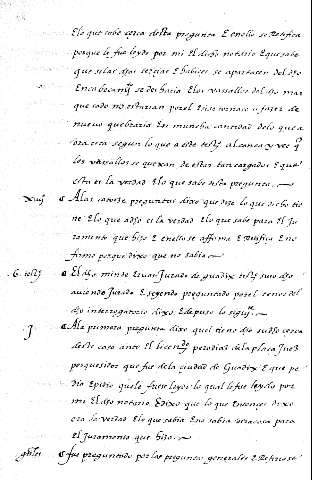 E lo que sabe cerca desta pregunta E en ello se Retifica
porque le fue leydo por mi El dicho notario E que sabe
que si las dhas tercias E habices se apartasen del dho
Encabecamyº se deshazia E los vasallos del dho mar
que todo no estarian por el E si se tornase a fazer de
nuevo quebraria En muncha cantidad de lo que a
ora esta segun lo que a este testº alcança y vee q
los vasallos se quexan de estar tan cargados E que
esta es la verdad E lo que sabe desta pregunta
xiiijº A las catorze preguntas dixo que dize lo que dicho tie
ne E lo que adho es la verdad E lo que sabe para El Ju
ramento que hizo E en ello se affirma E Retifica E no
firmo porque dixo que no sabia
.6. testº El dho mindo Ervan Jurado de guadix testº suso dho
aviendo Jurado E seyendo preguntado por el tenor del
dho interrogatorio dixo E depuso lo siguiº
j A la primera pregunta dixo quel tiene dho su dho cerca
deste caso ante El licendº perodias de la plaça Juez
pesquesidor que fue de la ciudad de Guadix E que pe
dia E pidio que le fuese leydo lo qual le fue leydo por
mi El dho notario E dixo que lo que Entonces dixo
era la verdad E lo que sabia E no sabia otra cosa para
El Juramento que hizo
gñles fue preguntado por las preguntas generales E Retificose